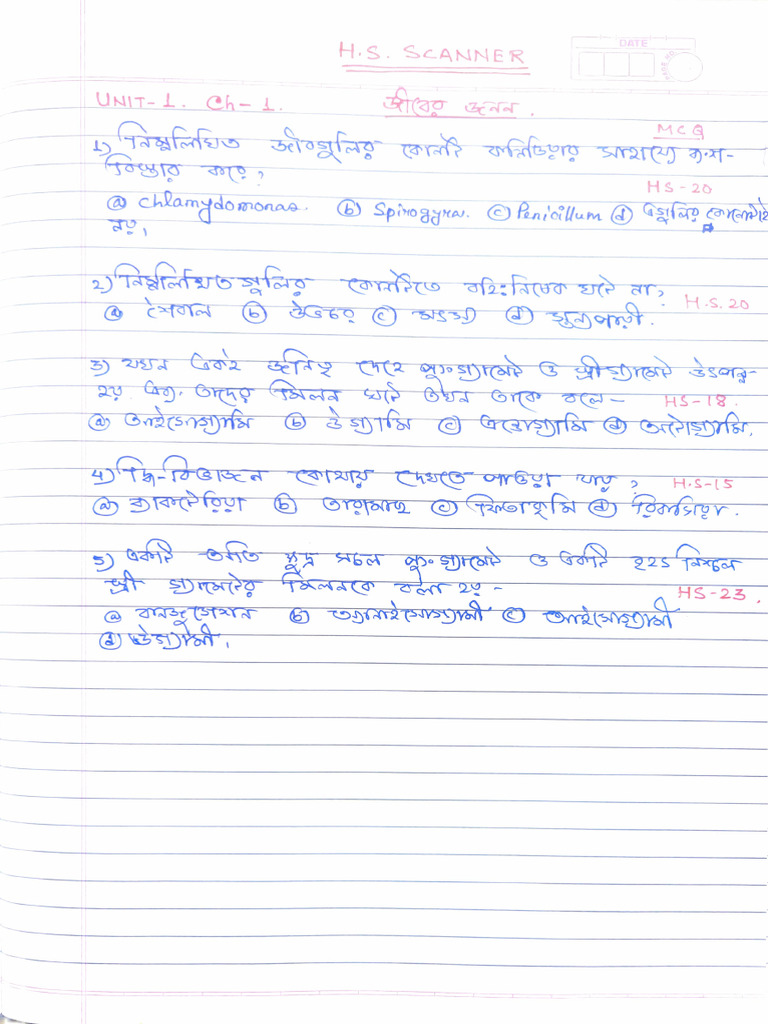 H.S. SCANNER
DATE
PAGE NO.
UNIT-1. Ch-1. জীবের জনন.
MCQ
1) নিম্নলিখিত জীবগুলির কোনটি কনিডিয়ার সাহায্যে বংশ-
বিস্তার করে?
HS-20
ⓐ Chlamydomonas. ⓑ Spirogyra. ⓒ Penicillum ⓓ এগুলির কোনোটাই
নয়।
2) নিম্নলিখিতগুলির কোনটিতে বহিঃনিষেক ঘটে না? H.S.20
ⓐ শৈবাল ⓑ উভচর ⓒ মৎস্য ⓓ স্তন্যপায়ী.
3) যখন একই জনিতৃ দেহে পুংগ্যামেট ও স্ত্রীগ্যামেট উৎপন্ন-
হয় এবং তাদের মিলন ঘটে তখন তাকে বলে- HS-18.
ⓐ আইসোগ্যামি ⓑ উগ্যামি ⓒ এন্ডোগ্যামি ⓓ অটোগ্যামি.
4) দ্বি-বিভাজন কোথায় দেখতে পাওয়া যায়? H.S-15
ⓐ ব্যাকটেরিয়া ⓑ তারামাছ ⓒ ফিতাকৃমি ⓓ রিকসিয়া.
5) একটি অতি ক্ষুদ্র সচল পুংগ্যামেট ও একটি বৃহৎ নিশ্চল
স্ত্রী গ্যামেটের মিলনকে বলা হয়- HS-23.
ⓐ কনজুগেশন ⓑ অ্যানাইসোগ্যামী ⓒ আইসোগ্যামী
ⓓ উগ্যামী.